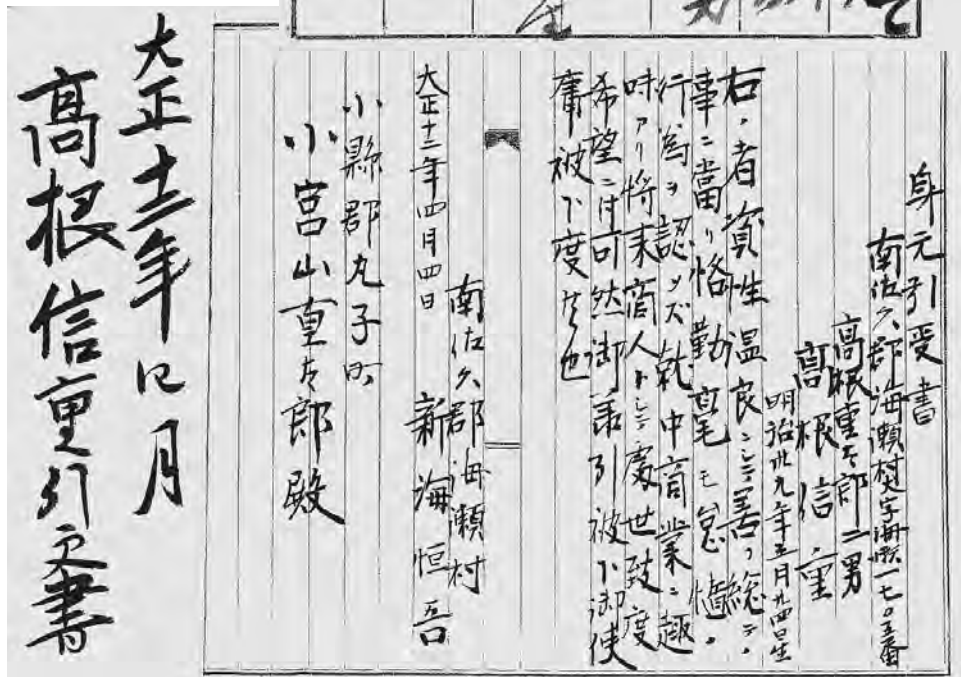 身元引受書
南佐久郡海瀬村字海瀬一七〇五番
高根重太郎二男
高根信重
明治卅九年五月廿四日生
右ノ者資性温良ニシテ善ク総テノ
事ニ当リ恪勤毫モ怠惰ノ
行為ヲ認メズ就中商業ニ趣
味アリ将来商人トシテ処世致度
希望ニ付可然御承引被下御使
庸被下度候也
大正十三年四月四日
南佐久郡海瀬村
新海恒吾
小縣郡丸子町
小宮山重太郎殿
大正十三年四月
高根信重引受書